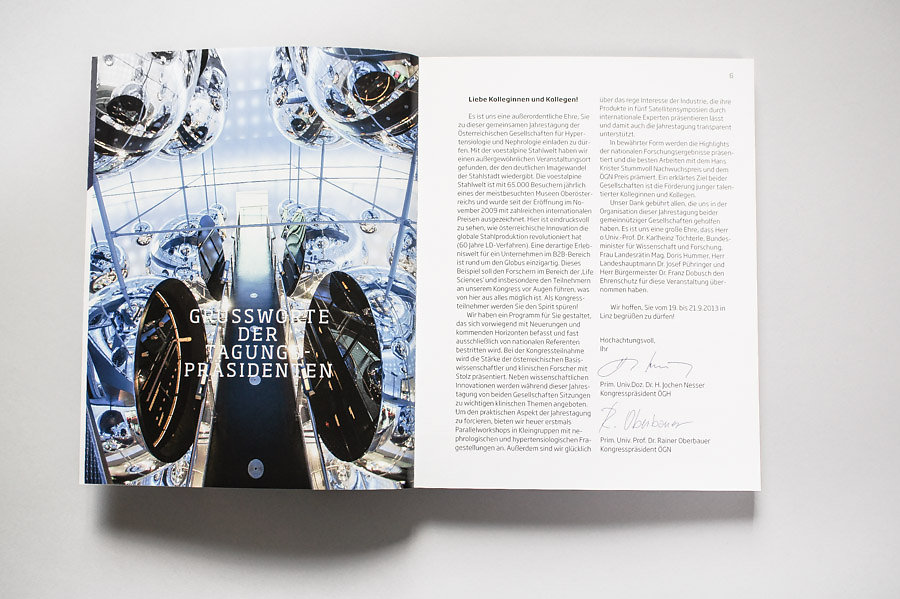 GRUSSWORTE
DER
TAGUNGS-
PRÄSIDENTEN
6
Liebe Kolleginnen und Kollegen!
Es ist uns eine außerordentliche Ehre, Sie
zu dieser gemeinsamen Jahrestagung der
Österreichischen Gesellschaften für Hyper-
tensiologie und Nephrologie einladen zu dür-
fen. Mit der voestalpine Stahlwelt haben wir
einen außergewöhnlichen Veranstaltungsort
gefunden, der den deutlichen Imagewandel
der Stahlstadt wiedergibt. Die voestalpine
Stahlwelt ist mit 65.000 Besuchern jährlich
eines der meistbesuchten Museen Oberöster-
reichs und wurde seit der Eröffnung im No-
vember 2009 mit zahlreichen internationalen
Preisen ausgezeichnet. Hier ist eindrucksvoll
zu sehen, wie österreichische Innovation die
globale Stahlproduktion revolutioniert hat
(60 Jahre LD-Verfahren). Eine derartige Erleb-
niswelt für ein Unternehmen im B2B-Bereich
ist rund um den Globus einzigartig. Dieses
Beispiel soll den Forschern im Bereich der ‚Life
Sciences' und insbesondere den Teilnehmern
an unserem Kongress vor Augen führen, was
von hier aus alles möglich ist. Als Kongress-
teilnehmer werden Sie den Spirit spüren!
Wir haben ein Programm für Sie gestaltet,
das sich vorwiegend mit Neuerungen und
kommenden Horizonten befasst und fast
ausschließlich von nationalen Referenten
bestritten wird. Bei der Kongressteilnahme
wird die Stärke der österreichischen Basis-
wissenschaftler und klinischen Forscher mit
Stolz präsentiert. Neben wissenschaftlichen
Innovationen werden während dieser Jahres-
tagung von beiden Gesellschaften Sitzungen
zu wichtigen klinischen Themen angeboten.
Um den praktischen Aspekt der Jahrestagung
zu forcieren, bieten wir heuer erstmals
Parallelworkshops in Kleingruppen mit ne-
phrologischen und hypertensiologischen Fra-
gestellungen an. Außerdem sind wir glücklich
über das rege Interesse der Industrie, die ihre
Produkte in fünf Satellitensymposien durch
internationale Experten präsentieren lässt
und damit auch die Jahrestagung transparent
unterstützt.
In bewährter Form werden die Highlights
der nationalen Forschungsergebnisse präsen-
tiert und die besten Arbeiten mit dem Hans
Krister Stummvoll Nachwuchspreis und dem
ÖGN Preis prämiert. Ein erklärtes Ziel beider
Gesellschaften ist die Förderung junger talen-
tierter Kolleginnen und Kollegen.
Unser Dank gebührt allen, die uns in der
Organisation dieser Jahrestagung beider
gemeinnütziger Gesellschaften geholfen
haben. Es ist uns eine große Ehre, dass Herr
o.Univ.-Prof. Dr. Karlheinz Töchterle, Bundes-
minister für Wissenschaft und Forschung,
Frau Landesrätin Mag. Doris Hummer, Herr
Landeshauptmann Dr. Josef Pühringer und
Herr Bürgermeister Dr. Franz Dobusch den
Ehrenschutz für diese Veranstaltung über-
nommen haben.
Wir hoffen, Sie vom 19. bis 21.9.2013 in
Linz begrüßen zu dürfen!
Hochachtungsvoll,
Ihr
Prim. Univ.Doz. Dr. H. Jochen Nesser
Kongresspräsident ÖGH
R. Oberbauer
Prim. Univ. Prof. Dr. Rainer Oberbauer
Kongresspräsident ÖGN